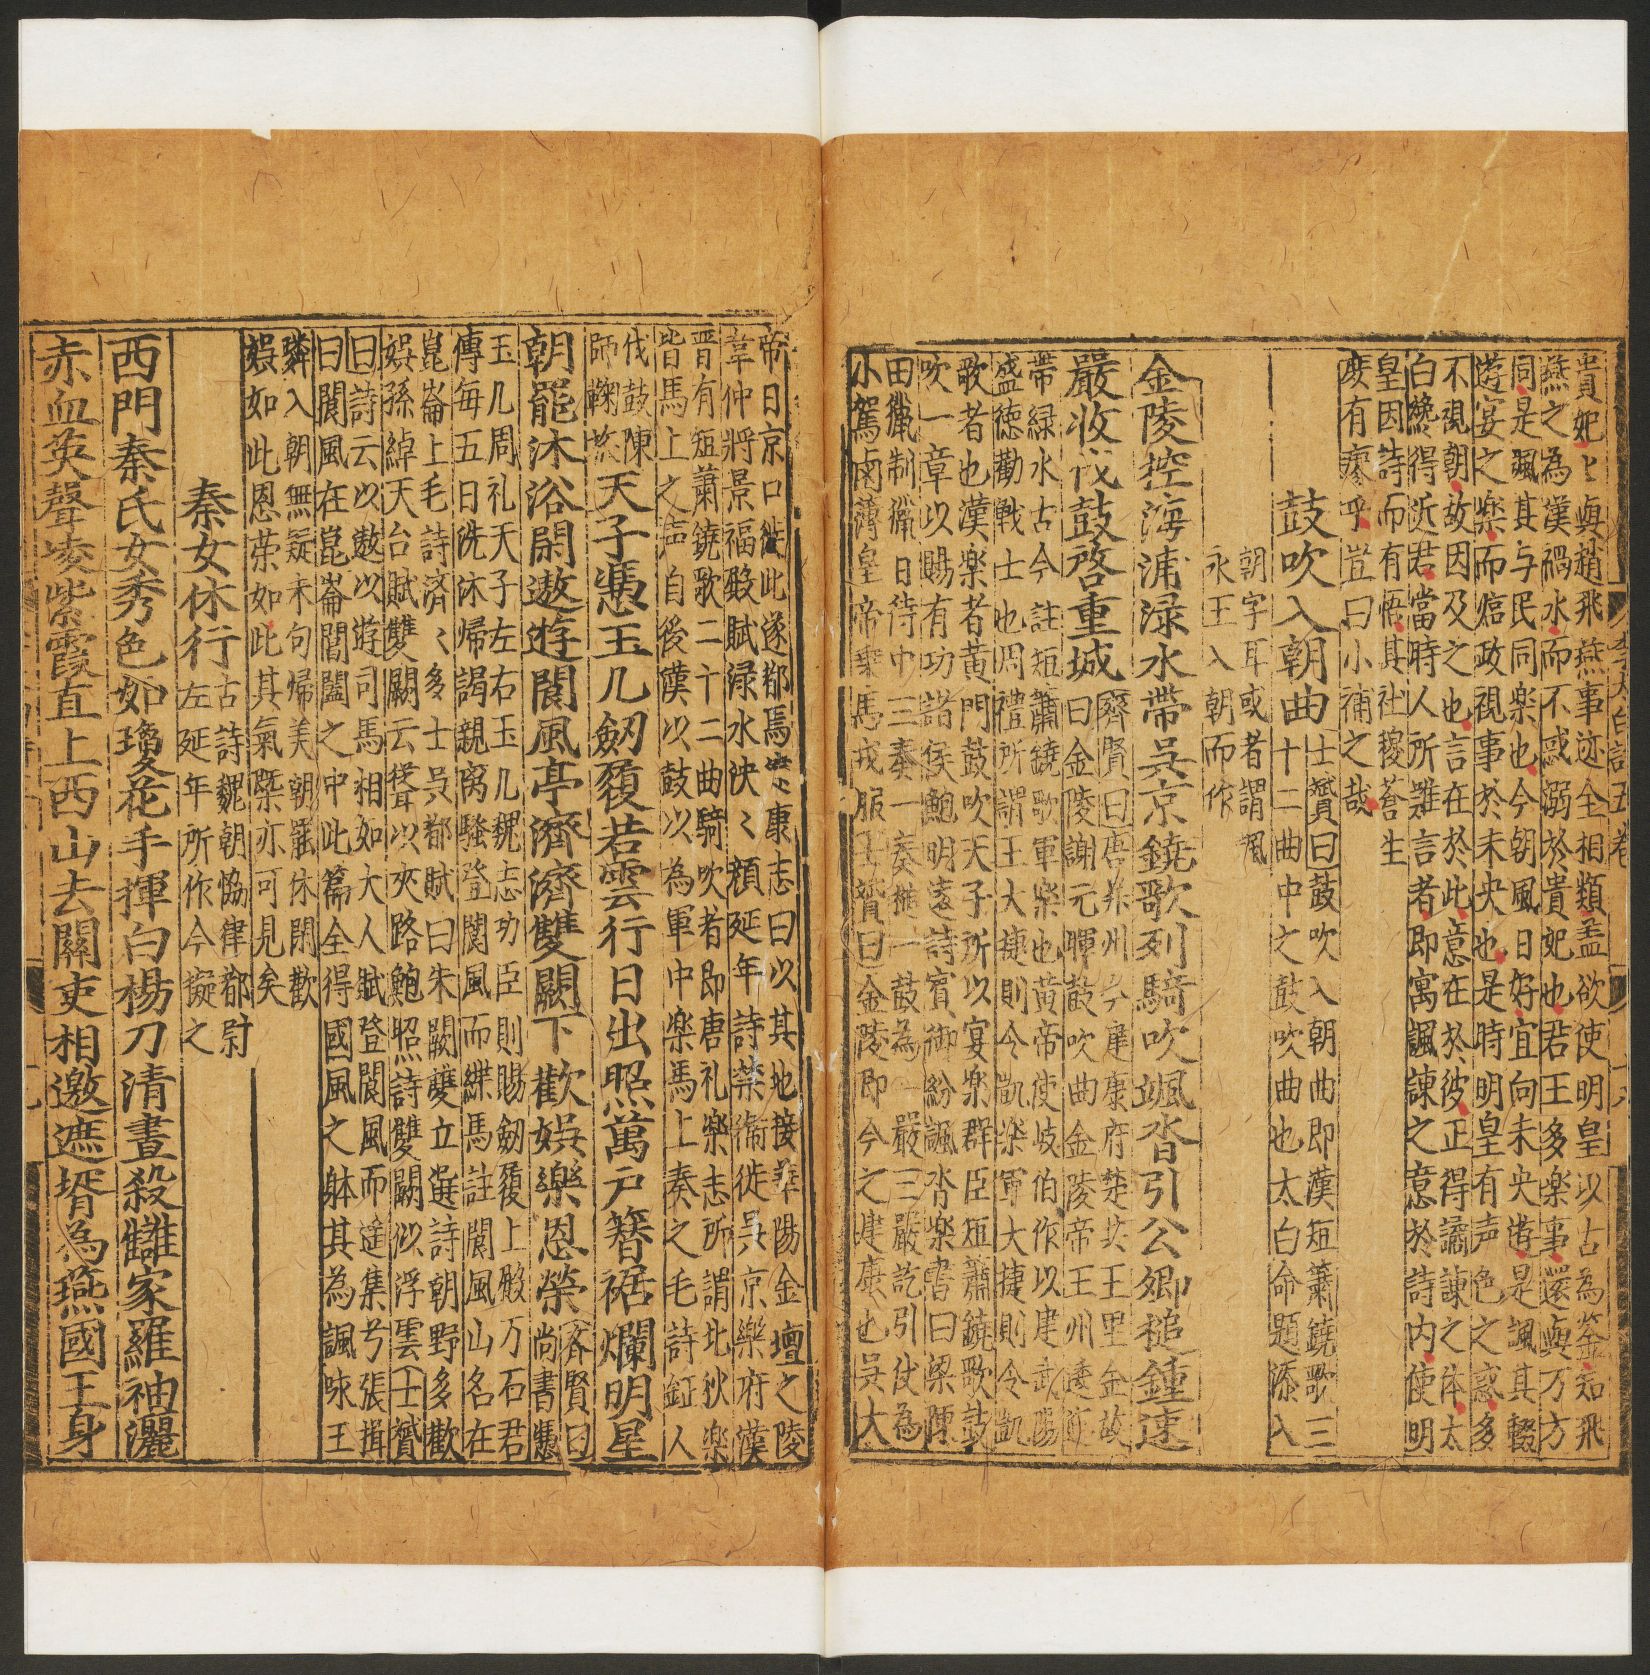 貴妃〻與趙飛燕事迹全相類盖欲使明皇以古為鑒知飛
燕之為漢禍水而不惑溺於貴妃也君王多楽事還與万方
同是諷其与民同楽也今朝風日好宜向未央遊是諷其輟
遊宴之楽而臨政視事於未央也是時明皇有声色之惑多
不視朝故因及之也言在於此意在於彼正得譎諫之体太
白纔得近君當時人所難言者即寓諷諫之意於詩内使明
皇因詩而有悟其社稷蒼生
庻有瘳乎豈曰小補之哉
鼓吹入朝曲
士贇曰鼓吹入朝曲即漢短簫鐃歌三
十二曲中之鼓吹曲也太白命題添入
朝字耳或者謂諷
永王入朝而作
金陵控海浦渌水帶吳京鐃歌列騎吹颯沓引公卿槌鍾速
嚴收伐鼓啓重城
齊賢曰唐昇州今建康府楚共王里金故
曰金陵謝元暉鼓吹曲金陵帝王州逶迤
帶緑水古今註短簫鐃歌軍楽也黄帝使岐伯作以建武揚
盛德勸戰士也周禮所謂王大捷則令凱楽軍大捷則令凱
歌者也漢楽者黄門鼓吹天子所以宴楽群臣短簫鐃歌鼓
吹一章以賜有功諸侯鮑明遠詩賓御紛颯沓楽書曰梁陳
田獵制獵日侍中三奏一奏搥一鼓為一嚴三嚴訖引仗為
小駕鹵簿皇帝乗馬戎服士贇曰金陵即今之建康也吳大
帝日京口徙此遂都焉建康志曰以其地接華陽金壇之陵
韋仲將景福殿賦渌水泱〻顔延年詩禁衛徙吳京樂府漢
晋有短蕭鐃歌二十二曲騎吹者即唐礼樂志所謂北狄楽
皆馬上之声自後漢以鼓以為軍中楽馬上奏之毛詩鉦人
伐鼓陳
師鞠旅
天子慿玉几劔履若雲行日出照萬戸簪裾爛明星
朝罷沐浴閑遨遊閬風亭濟濟雙闕下歡娯樂恩榮
齊賢曰
尚書慿
玉几周礼天子左右玉几魏志功臣則賜劔履上殿万石君
傳每五日洗沐帰謁親离騷登閬風而緤馬註閬風山名在
崑崙上毛詩濟〻多士吳都賦曰朱闕雙立選詩朝野多歡
娯孫綽天台賦雙闕云聳以夾路鮑照詩雙闕似浮雲士贇
曰詩云以遨以遊司馬相如大人賦登閬風而遥集兮張揖
曰閬風在崑崙閶闔之中此篇全得國風之躰其為諷咏王
璘入朝無疑末句帰美朝罷休閑歡
娯如此恩荣如此其氣槩亦可見矣
秦女休行
古詩魏朝恊律都尉
左延年所作今擬之
西門秦氏女秀色如瓊花手揮白楊刀清晝殺讎家羅袖灑
赤血英聲凌紫霞直上西山去關吏相邀遮壻為燕國王身